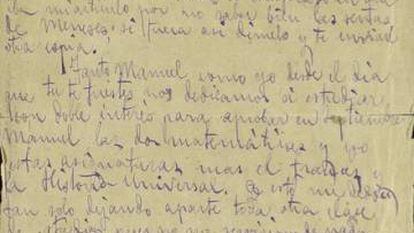 mi artículo por no saber bien las señas
de Meneses, si fuera asi dimelo y te enviaré
otra copia.
Tanto Manuel como yo desde el día
que tu te fuestes nos dedicamos a estudiar
con doble interés para aprobar en septiembre
Manuel las dos matemáticas y yo
estas asignaturas mas el frances y
la Historia Universal. Es este mi deseo
tan solo dejando aparte toda otra clase
de